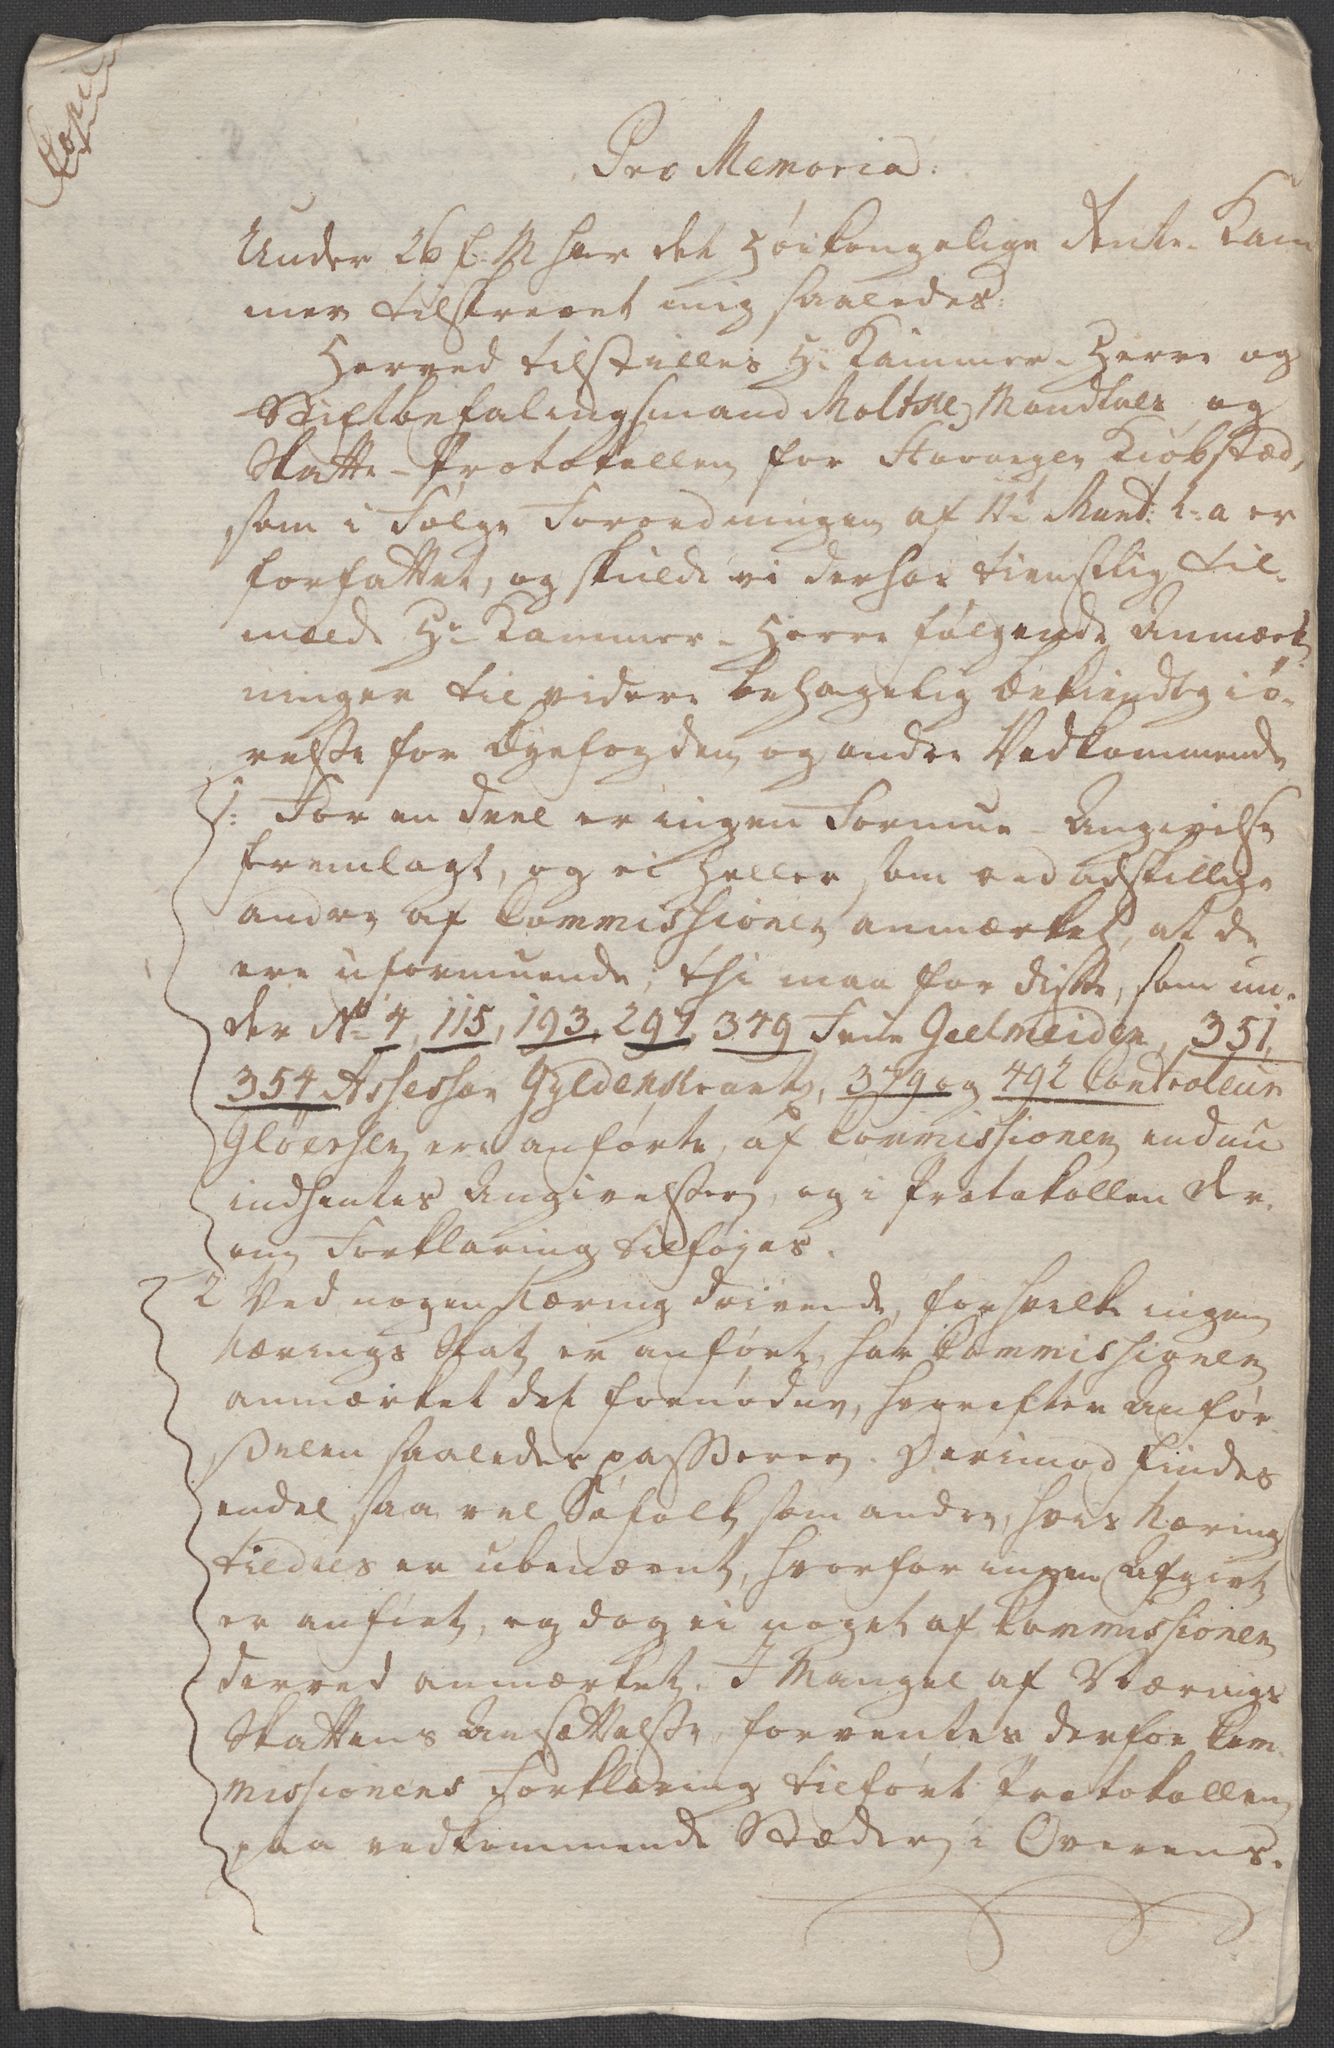 Copie
Pro Memoria:
Under 26 f: M har det Høikongelige Rente-Kam
mer tilskrevet mig saaledes:
Herved tilstilles Hr Kammer-Herre og
Stiftbefalingsmand Moltke, Mandtals og
Skatte-Protokollen for Stavanger Kiøbstæd,
som i Følge Forordningen af 11te Martj h: a er
forfattet, og skulde vi derhos tienstlig til-
melde Hr Kammer-Herre følgende Anmærk
ninger til videre behagelig Bekiendtgiø-
relse for Byefogden og andre Vedkommende
1: For en deel er ingen Formue-Angivelse
fremlagt, og ei heller som ved adskillige
andre af Commissionen anmærket, at de
ere uformuende; thi maa for disse, som un-
der No 4, 115, 193, 297, 349 Frue Geelmeiden, 351,
354 Assessor Gyldenkrantz, 379 og 492 Controleur
Gløersen ere anførte, af Commissionen endnu
indhentes Angivelser, og i Protokollen der-
om Forklaring tilføjes.
2 Ved nogen Næring drivende, for hvilke ingen
Nærings Skat er anført, har Commissionen
anmærket det fornødne, hvorefter Anfør
selen saaledes passerer. Derimod findes
endel saa vel Søfolk som andre, hvis Næring
tildeels er ubenævnt, hvorfor ingen Afgivt
er anført, og dog ei noget af Commissionen
derved anmærket. I Mangel af Nærings
Skattens Ansættelse, forventes derfor Com-
missionens Forklaring tilført Protokollen
paa vedkommende Stæder i Overens-